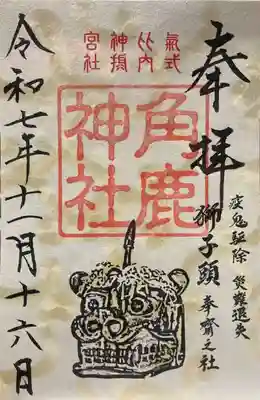 奉拝
疫鬼駆除 災難退失
獅子頭 奉齋之社
式内
神社
角鹿
神社
令和七年十一月十六日